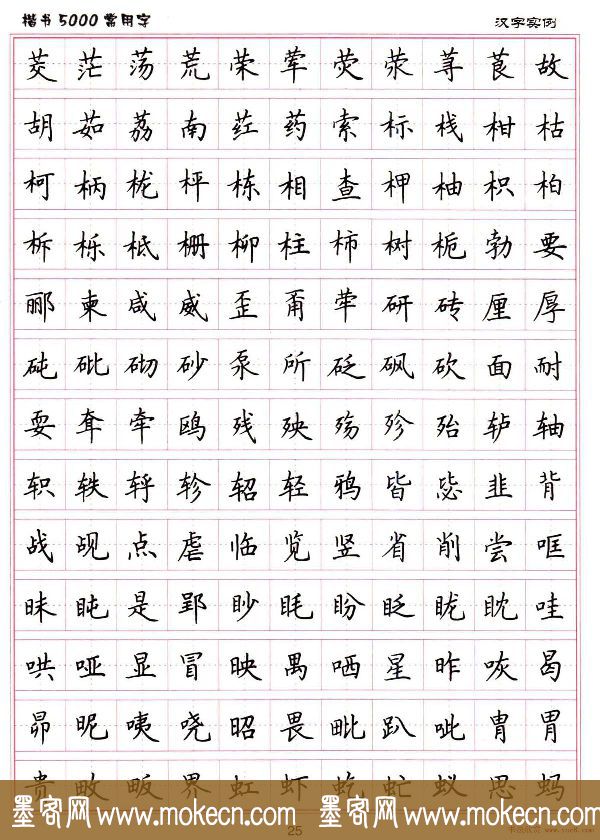 楷书5000常用字 汉字实例
茭茫荡荒荣荤荧荥荨茛故
胡茹荔南荭药索标栈柑枯
柯柄栊枰栋相查柙柚枳柏
柝栎柢栅柳柱柿树栀勃要
郦柬咸威歪甭荦研砖厘厚
砘砒砌砂泵所砭砜砍面耐
耍耷牵鸥残殃殇殄殆轳轴
轵轶轷轸轺轻鸦皆毖韭背
战觇点虐临览竖省削尝哐
昧盹是郢眇眊盼眨昽眈哇
哄哑显冒映禺哂星昨咴曷
昴昵咦哓昭畏毗趴呲胄胃
贵畋畈界虹虾虼虻蚁思蚂
墨客网 www.mokecn.com 墨客网 www.mokecn.com
25